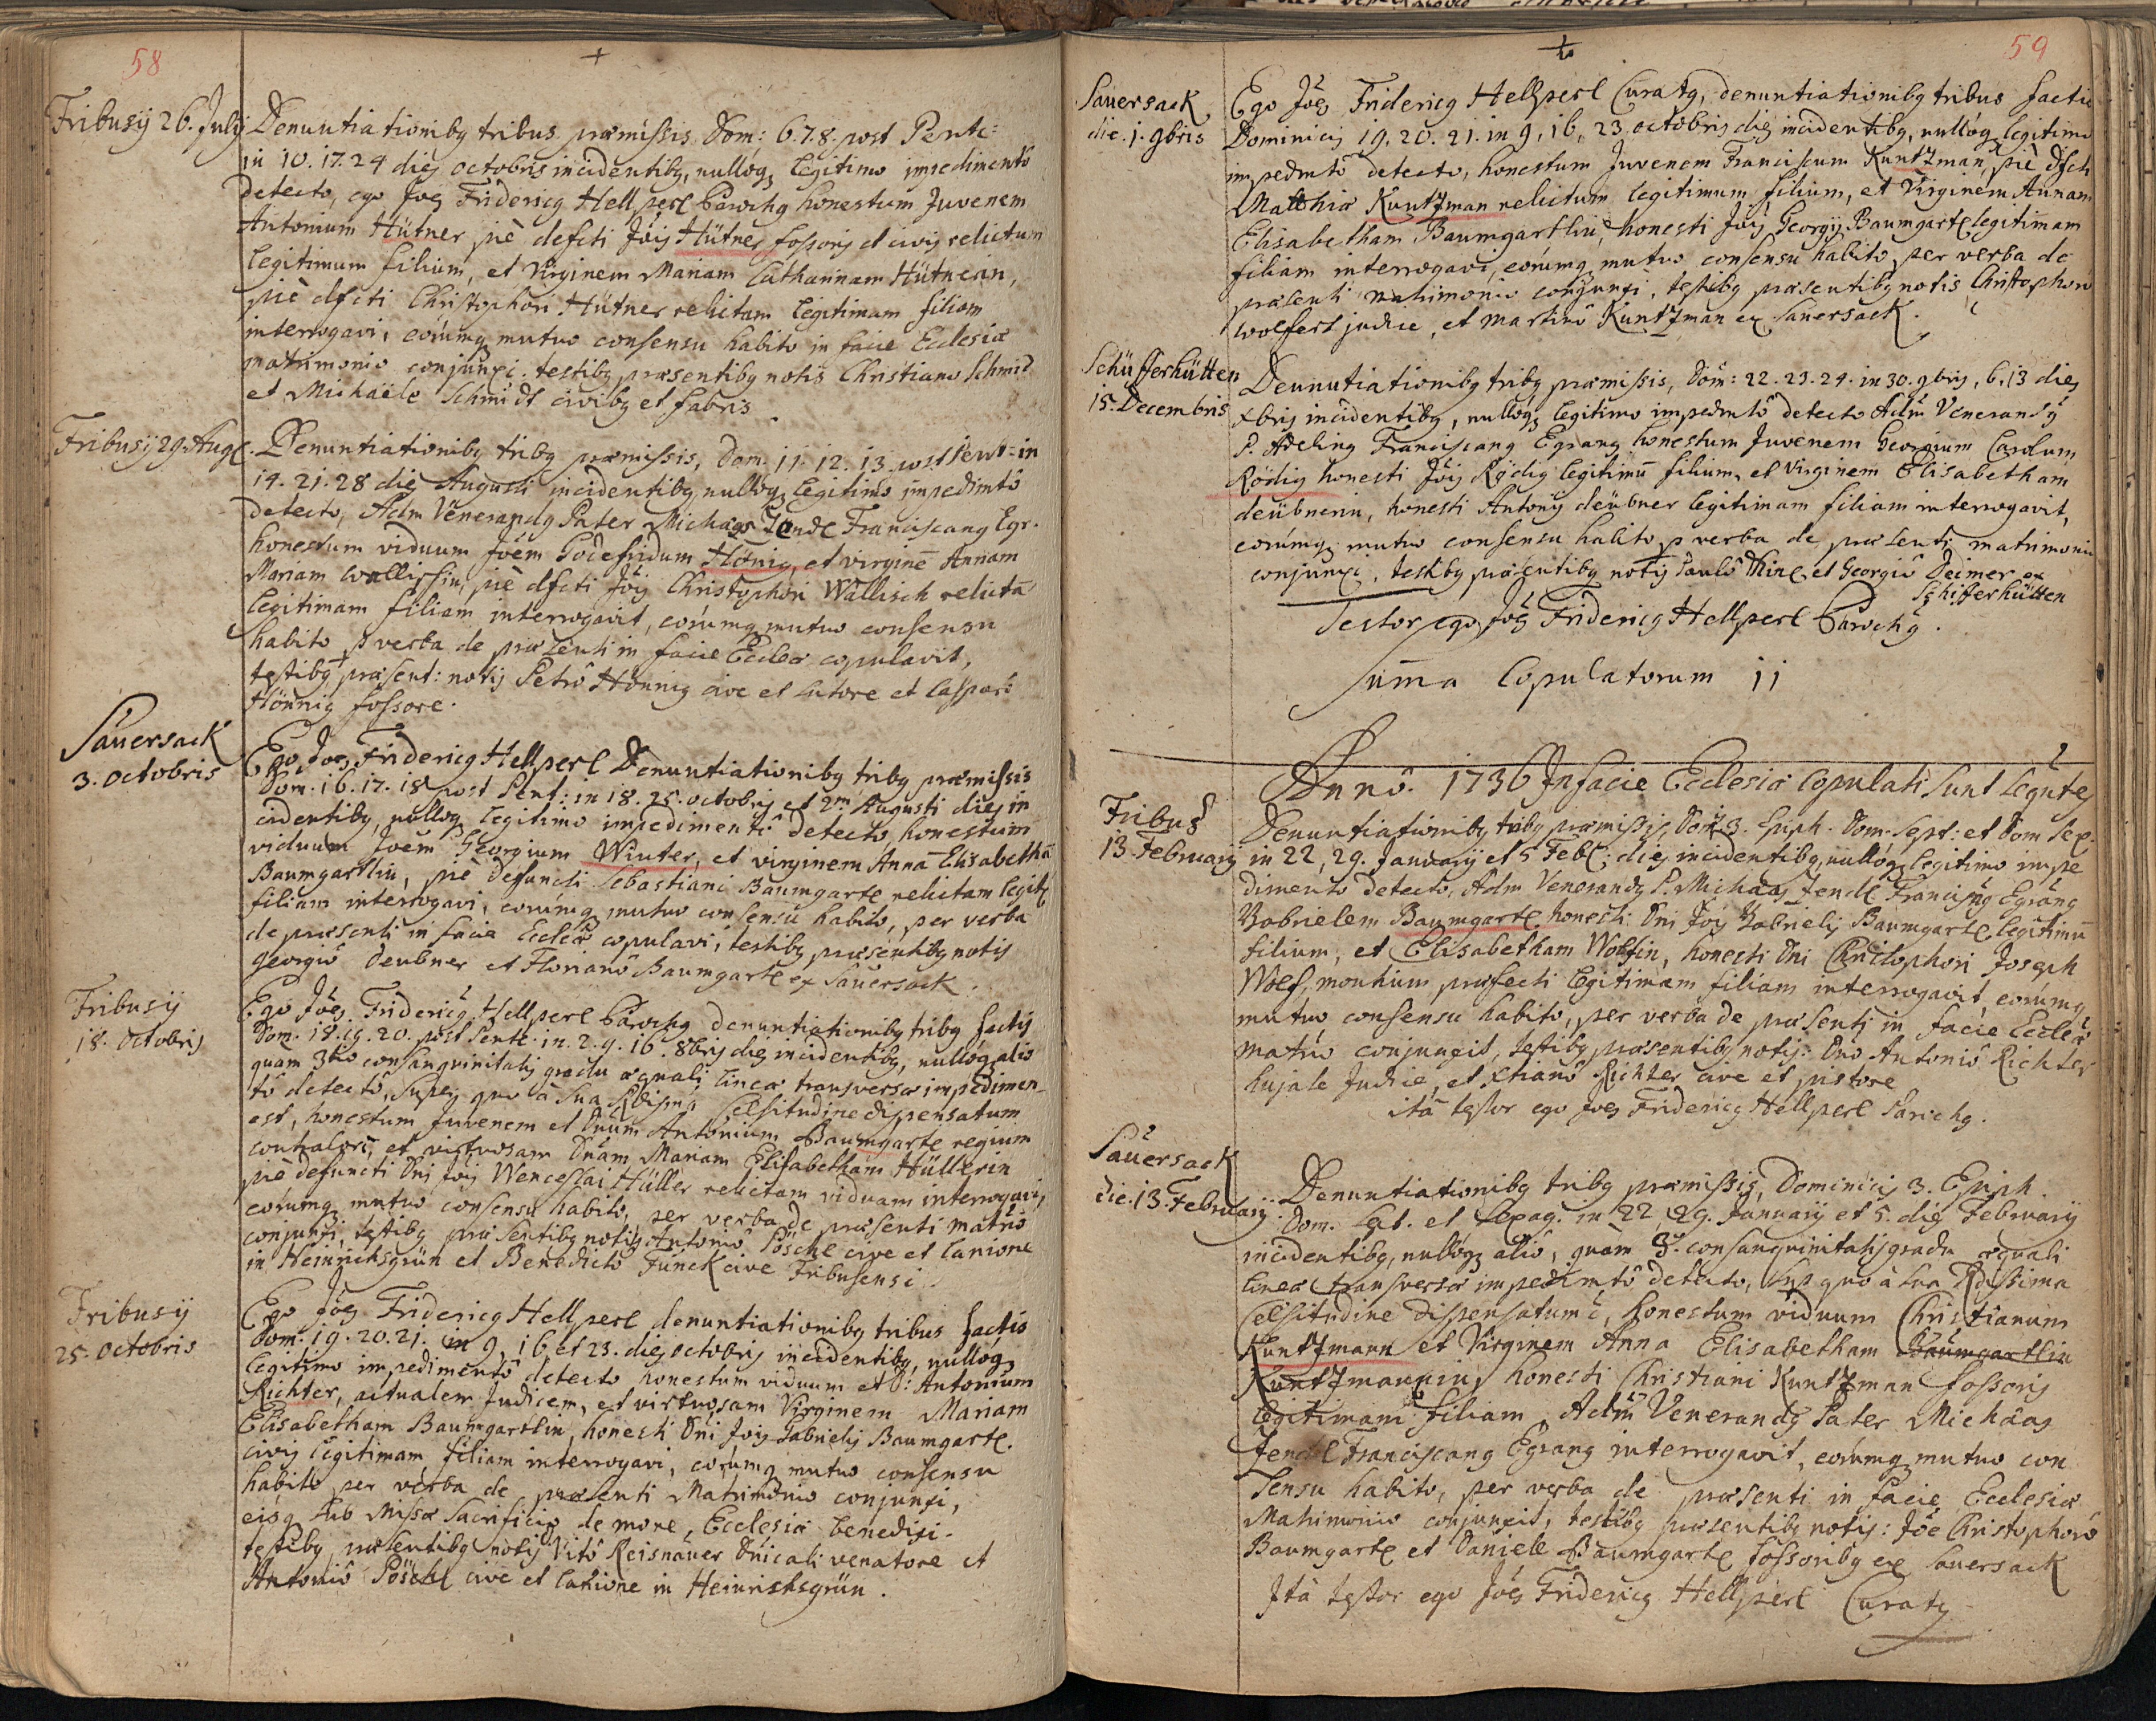 58
Tribusÿ 26. Julÿ
Denuntiationibq tribus præmissis Dom: 6. 7. 8. post Pent:
in 10. 17. 24 dies octobris incidentibq, nulloq legitimo impedimento
detecto, ego Joes Fridericq Hellperl Parochq honestum Juvenem
Antonium Hütner piè defcti Jois Hütner fossoris et civis relictum
legitimum filium, et Virginem Mariam Catharinam Hütnerin,
piè dfcti Christophori Hütner relictam legitimam filiam
interrogavi, eorumq mutuo consensu habito in facie Ecclesiæ
matrimonio conjunxi. testibq præsentibq notis Christiano Schmid
et Michaële Schmidt civibq et fabris
Tribusÿ 29. Augt.
Denuntiationibq tribq præmissis, Dom. 11. 12. 13. post Pent: in
14. 21. 28 dies Augusti incidentibq nulloq legitimo impedimto
detecto, Adm Venerandq Pater Michäas Jendl Franciscanq Egr.
honestum viduum Joēm Godefridum Hönig, et virginē Annam
Mariam Wallissin, piè dfcti Jois Christophori Wallisch relictā
legitimam filiam interrogavit, eorumq mutuo consensu
habito p verba de præsenti in facie Eccleæ copulavit,
testibq præsent: notis Petrô Hönnig cive et sutore et Casparo
Hönnig fossore.
Sauersack
3. Octobris
Ego Joes Fridericq Hellperl Denuntiationibq tribq præmissis
Dom. 16. 17. 18 post Pent: in 18. 25. octobris et 2m Augusti dies in
cidentibq, nulloq legitimo impedimentô detecto honestum
viduum Joēm Georgium Winter, et virginem Annā Elisabethā
Baumgartlin, piè defuncti Sebastiani Baumgartl relictam legit
filiam interrogavi, eorumq mutuo consensu habito, per verba
de præsenti in facie Eccleæ copulavi, testibq præsentibq notis
Georgiô Deubner et Florianô Baumgartl ex Sauersack.
Tribusÿ
18. Octobris
Ego Joes Fridericq Hellperl Parochq denuntiationibq tribq factis
Dom. 18. 19. 20. post Pent: in. 2. 9. 16. 8bris dies incidentibq, nulloq alio
quam 3tio consanguinitatis gradu æquali lineæ transversæ impedimen-
to detectô, super quo à Sua Rdisma Celsitudine dispensatum
est, honestum Juvenem et Dnum Antonium Baumgartl regium
contralor, et virtuosam Dnam Mariam Elisabetham Hüllerin
piè defuncti Dni Jois Wenceslai Hüller relictam viduam interrogavi,
eorumq mutuo consensu habito, per verba de præsenti matrio
conjunxi, testibq præsentibq notis Antoniô Pöschl cive et lanione
in Heinrichsgrün et Benedicto Funck cive Tribusensi.
Tribusÿ
25. Octobris
Ego Joes Fridericq Hellperl denuntiationibq tribus factis
Dom. 19. 20. 21. in 9, 16, et 23. dies octobris incidentibq, nulloq
legitimo impedimentô detecto honestum viduum et D: Antonium
Richter, actualem Judicem, et virtuosam Virginem Mariam
Elisabetham Baumgartlin, honesti Dni Jois Gabrielis Baumgartl.
civis legitimam filiam interrogavi, eorumq mutuo consensu
habito per verba de præsenti Matrimonio conjunxi,
eisq sub Missæ Sacrificio de more, Ecclesiæ benedixi.
testibq præsentibq notis Vitô Reisnauer Dnicali venatore et
Antoniô Pöschl cive et lanione in Heinrichsgrün.
59
Sauersack
die. 1. 9bris
Ego Joes Fridericq Hellperl Curatq, denuntiationibq tribus factis
Dominicis 19. 20. 21. in 9, 16, 23 octobris dies incidentibq, nulloq legitimo
impedmtô detecto, honestum Juvenem Franciscum Kuntzman, piè dfcti
Matthiæ Kuntzman relictum legitimum filium, et Virginem Annam
Elisabetham Baumgartlin, honesti Jois Georgÿ Baumgartl legitimam
filiam interrogavi, eorumq mutuo consensu habito, per verba de
præsenti matrimonio conjunxi, testibq præsentibq notis Christophoro
Wolfert judice, et Martinô Kuntzman ex Sauersack.
Schüfferhütten
15. Decembris
Denuntiationibq tribq præmissis, Dom: 22. 23. 24. in 30. 9bris, 6. 13 dies
xbris incidentibq, nulloq legitimo impedmtô detecto Adm Venerandq
P. Adelinq Franciscanq Egranq honestum Juvenem Georgium Carolum
Rödig honesti Jois Rödig legitimū filium, et Virginem Elisabetham
deübnerin, honesti Antonÿ deübner legitimam filiam interrogavit,
eorumq mutuo consensu habito p verba de præsenti matrimonio
conjunxi, testibq præsentibq notis Paulô Thinl et Georgiô Deimer ex
Schifferhütten
Testor ego Joes Fridericq Hellperl Parochq.
Summa Copulatorum 11
Annô. 1736 In facie Ecclesiæ Copulati Sunt Seqntes
Tribus
13. Februarÿ
Denuntiationibq tribq præmissis, Dom. 3. Epiph. Dom. Sept: et Dom Sex.
in 22, 29. Januarÿ et 5 Feb: dies incidentibq, nulloq legitimo impe
dimento detecto, Adm Venerandq P. Michäas Jendl Franciscnq Egranq
Gabrielem Baumgartl honesti Dni Jois Gabrielis Baumgartl legitimū
filium, et Elisabetham Wolfin, honesti Dni Christophori Joseph
Wolf, montium præfecti legitimam filiam interrogavit, eorumq
mutuo consensu habito, per verba de præsenti in facie Eccleæ
matrio conjunxit, testibq præsentibq notis: Dno Antoniô Richter
hujate Judice, et Xtianô Richter cive et pistore
ità testor ego Joes Fridericq Hellperl Parochq.
Sauersack
die. 13. Februarÿ.
Denuntiationibq tribq præmissis, Dominicis 3. Epiph.
Dom. Sept. et Sexag. in 22, 29. Januarÿ et 5. dies Februarÿ
incidentibq, nulloq aliô, quàm 3. consanguinitatis gradu æquali
lineæ transversæ impedimtô detecto, sup quo à sua Rdissima
Celsitudine dispensatum ē, honestum viduum Christianum
Kuntzmann et Virginem Anna Elisabetham Baumgartlin
Kuntzmannin, honesti Christiani Kuntzman fossoris
legitimam filiam, Adm Venerandq Pater Michäas
Jendl Franciscanq Egranq interrogavit, eorumq mutuo con
sensu habito, per verba de præsenti in facie Ecclesiæ
Matrimonio conjunxit, testibq præsentibq notis: Joe Christophorô
Baumgartl et Daniele Baumgartl fossoribq ex Sauersack
Ità testor ego Joes Fridericq Hellperl Curatq